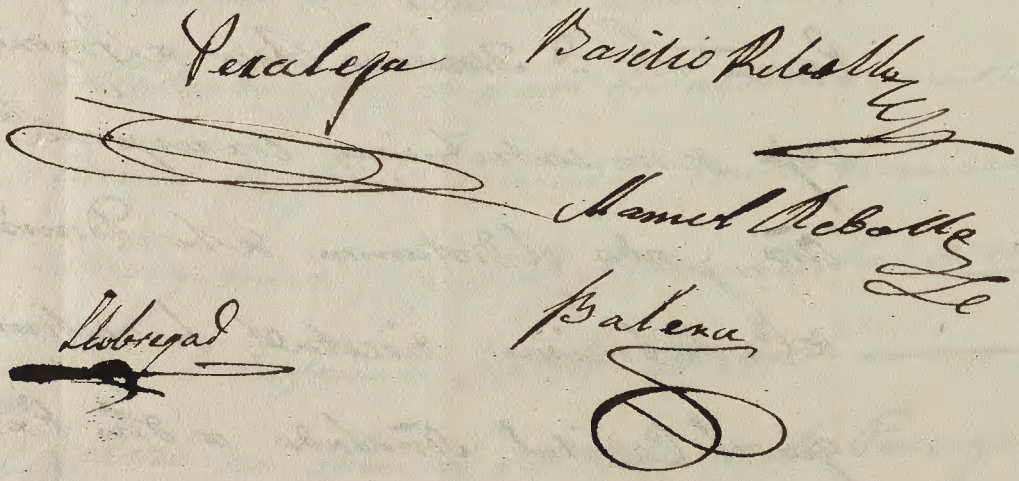 Peralega Basilio Rebollo
Manuel Rebollo
Llobregad
Balena